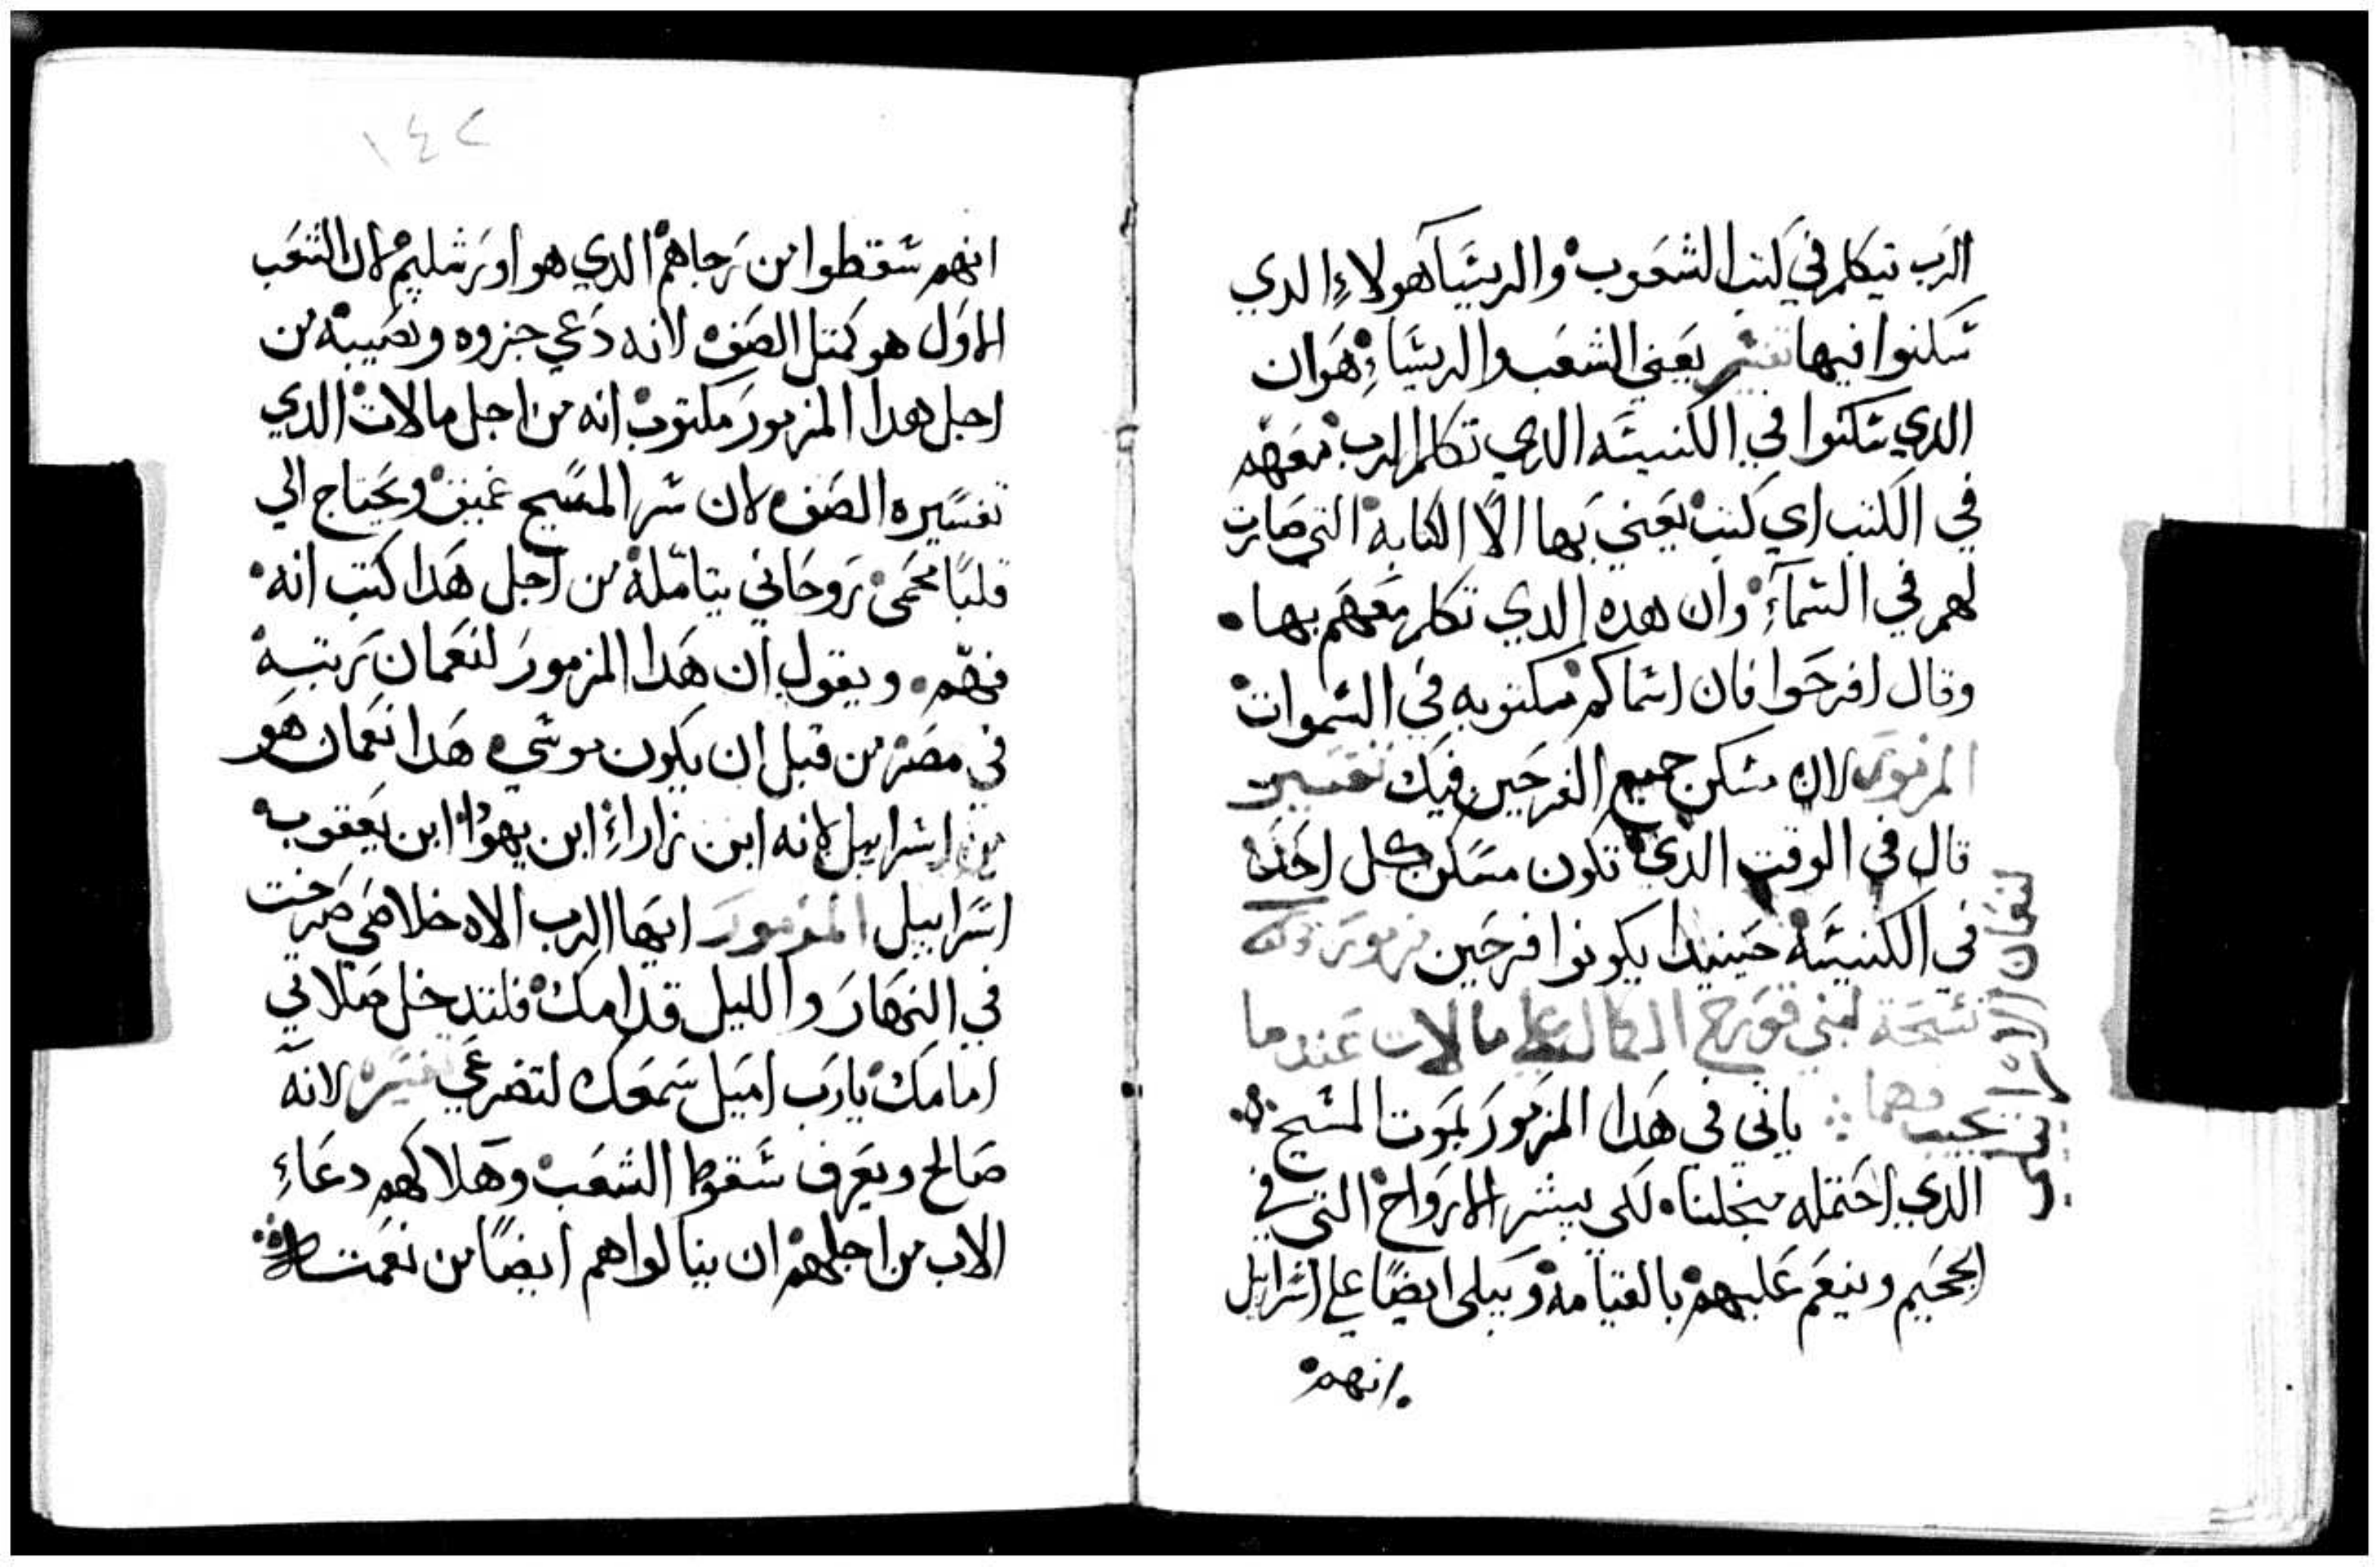 الرب تيكلم في كتب الشعوب والريسا هولاء الدي
سكنوا فيها تفسير يعني الشعب والريساء هوان
الدي سكنوا في الكنيسه الدي تكلم الرب معهم
في الكتب اي كتب يعني بها الا الكتابه التي صارت
لهم في السماء وان هده الدي تكلم معهم بها
وقال افرحوا فان اسماكم مكتوبه في السموات
المزمور لان مسكن جميع الفرحين فيك تفسير
قال في الوقت الدي تكون مسكن كل احد
في الكنيسه حينيدا يكونوا فرحين مزمور
تسبحة لبني قورح الكمال علي مالات عندما
يجيب فهما ياتي في هدا المزمور بموت المسيح
الدي احتمله منجلنا لكي يبشر الارواح التي في
الجحيم وينعم عليهم بالقيامه ويبكي ايضا علي اسراييل
انهم
لنعمان الاسراييلي
١٤٢
انهم سقطوا من رجاهم الدي هو اورشليم لان الشعب
الاول هو كمتل الصف لانه دعي جزوه ونصيبه من
اجل هدا المزمور مكتوب انه من اجل مالات الدي
تفسيره الصف لان سر المسيح عميق ويحتاج الي
قلبا محمي روحاني يتامله من اجل هدا كتب انه
فهم ويقول ان هدا المزمور لنعمان رتبه
في مصر من قبل ان يكون موسي هدا نعمان هو
من اسراييل لانه ابن زاراء ابن يهودا ابن يعقوب
اسراييل المزمور ايها الرب الاه خلاصي صرخت
في النهار والليل قدامك فلتدخل صلاتي
امامك يارب اميل سمعك لتضرعي تفسير لانه
صالح ويعرف سقوط الشعب وهلاكهم دعاء
الاب من اجلهم ان ينالوا هم ايضا من نعمته